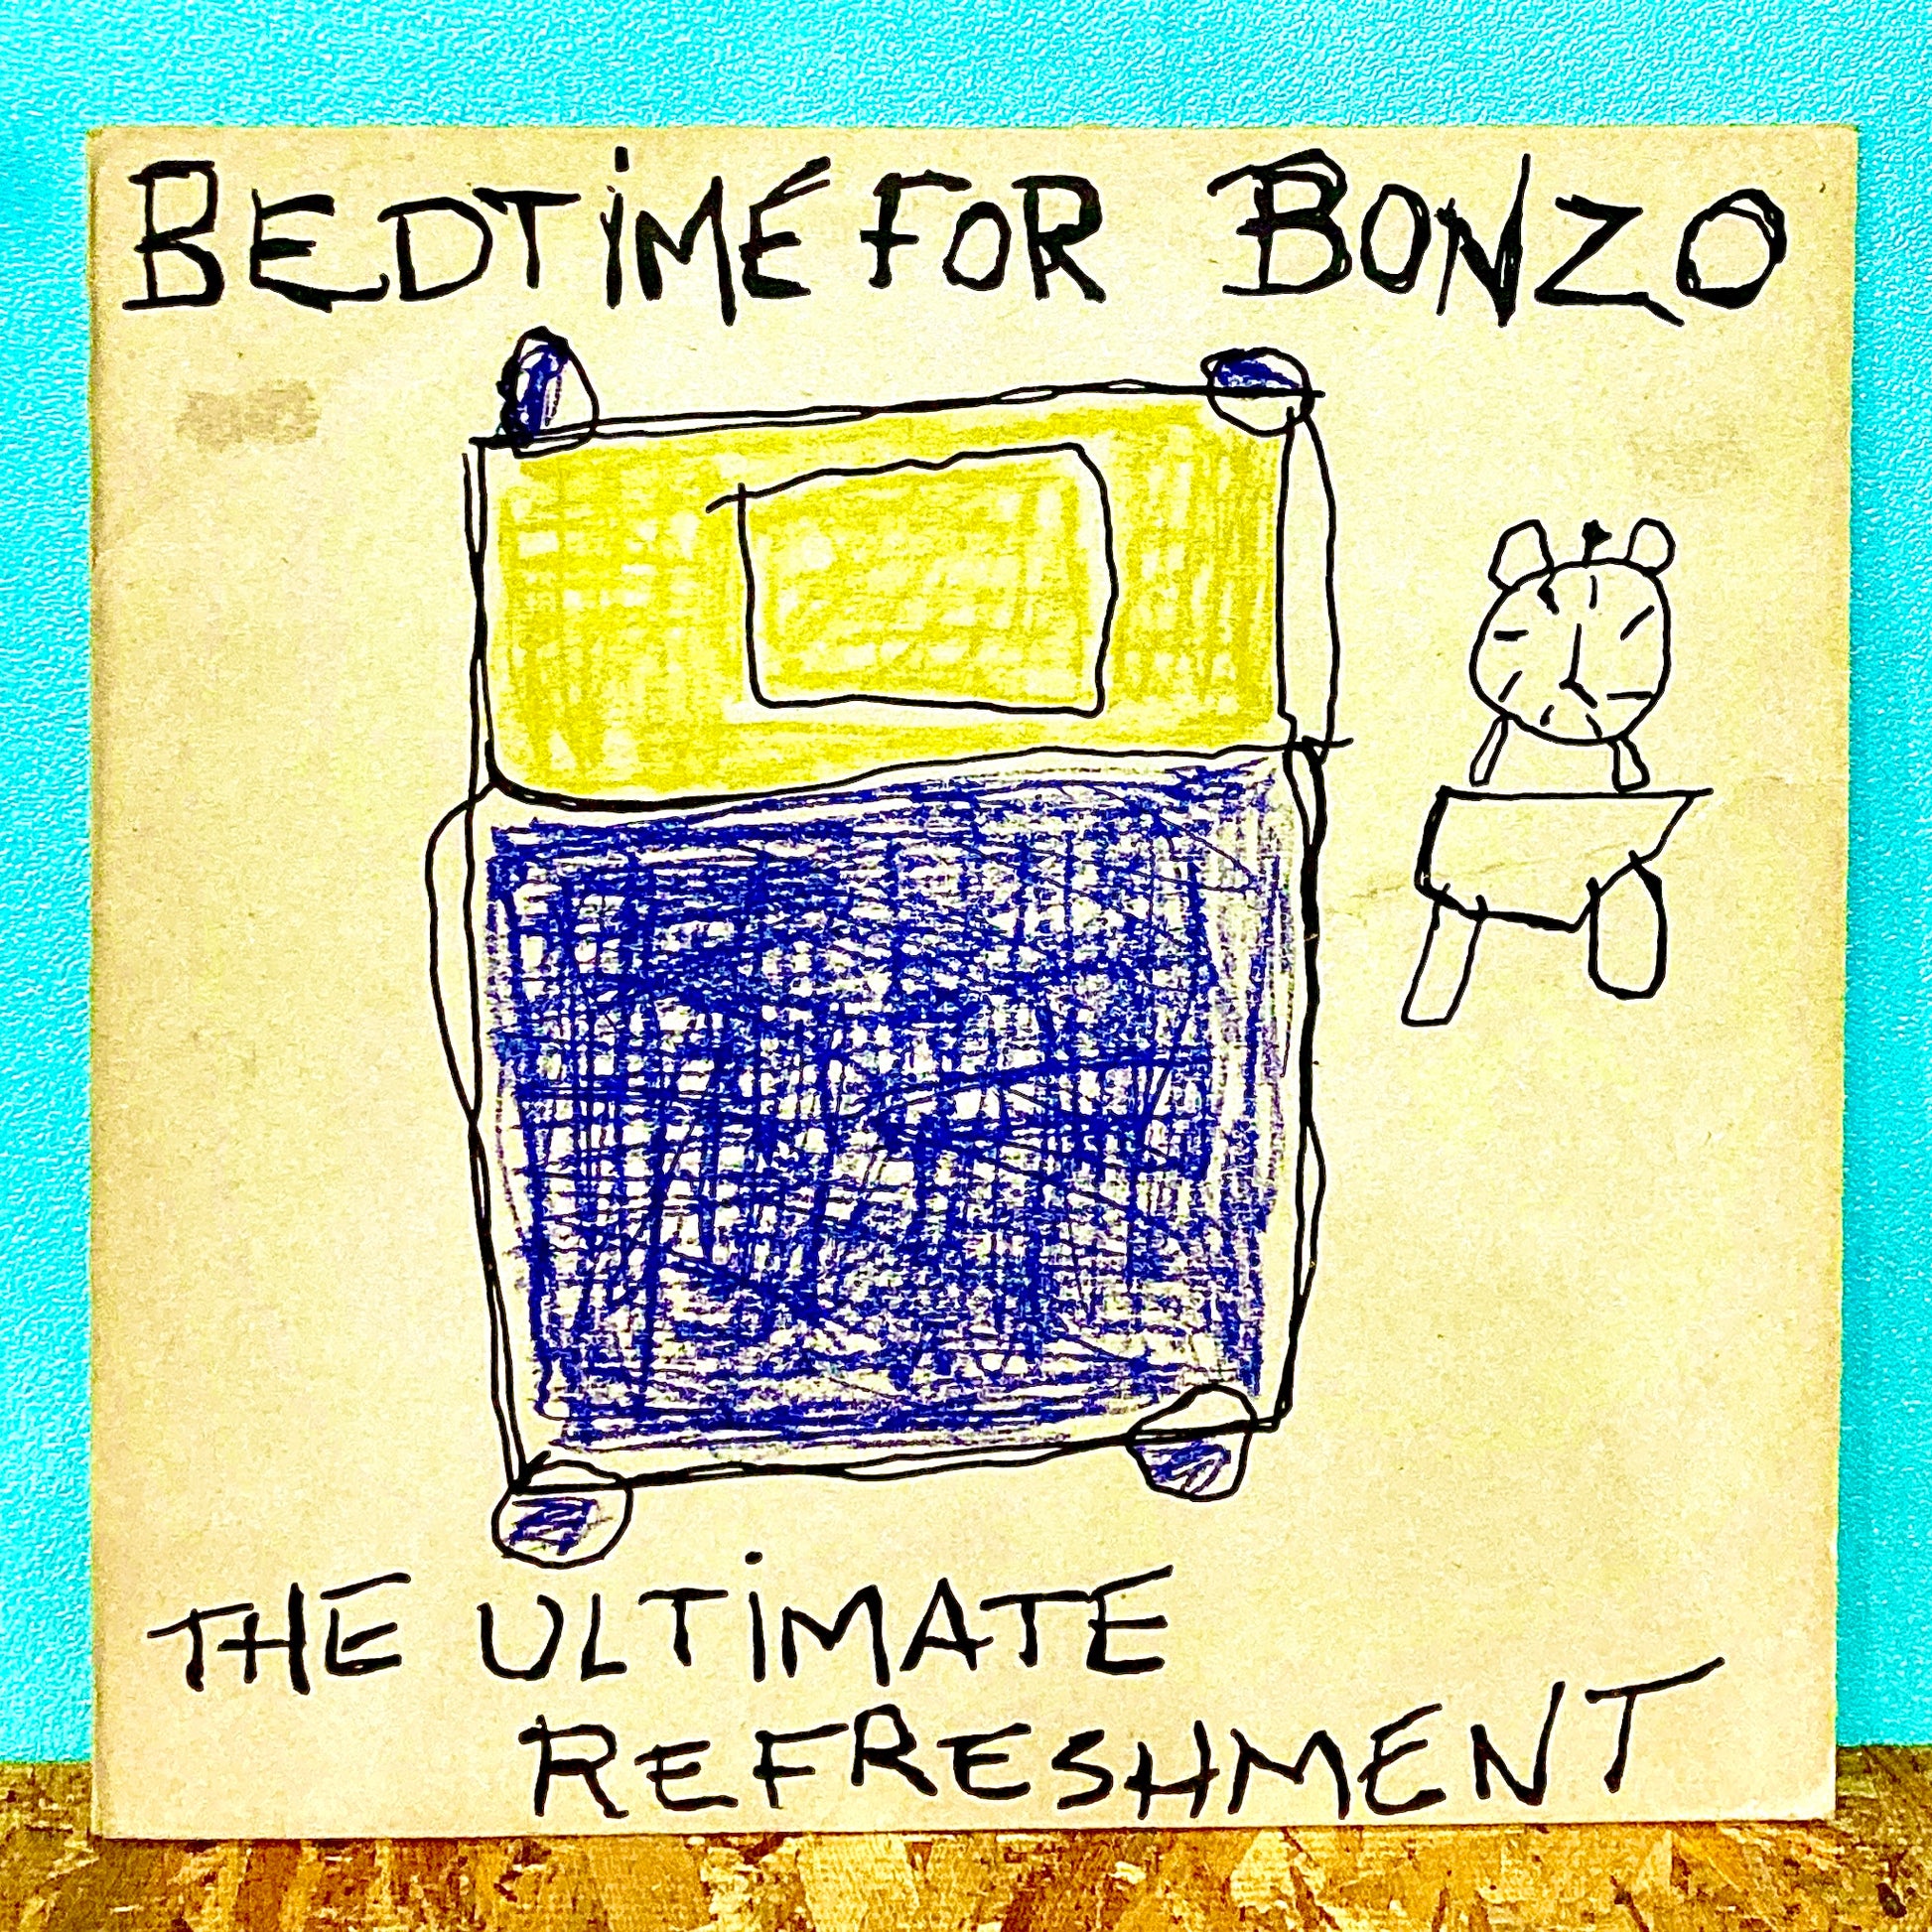 BEDTiME FOR BONZO
THE ULTiMATE
REFRESHMENT